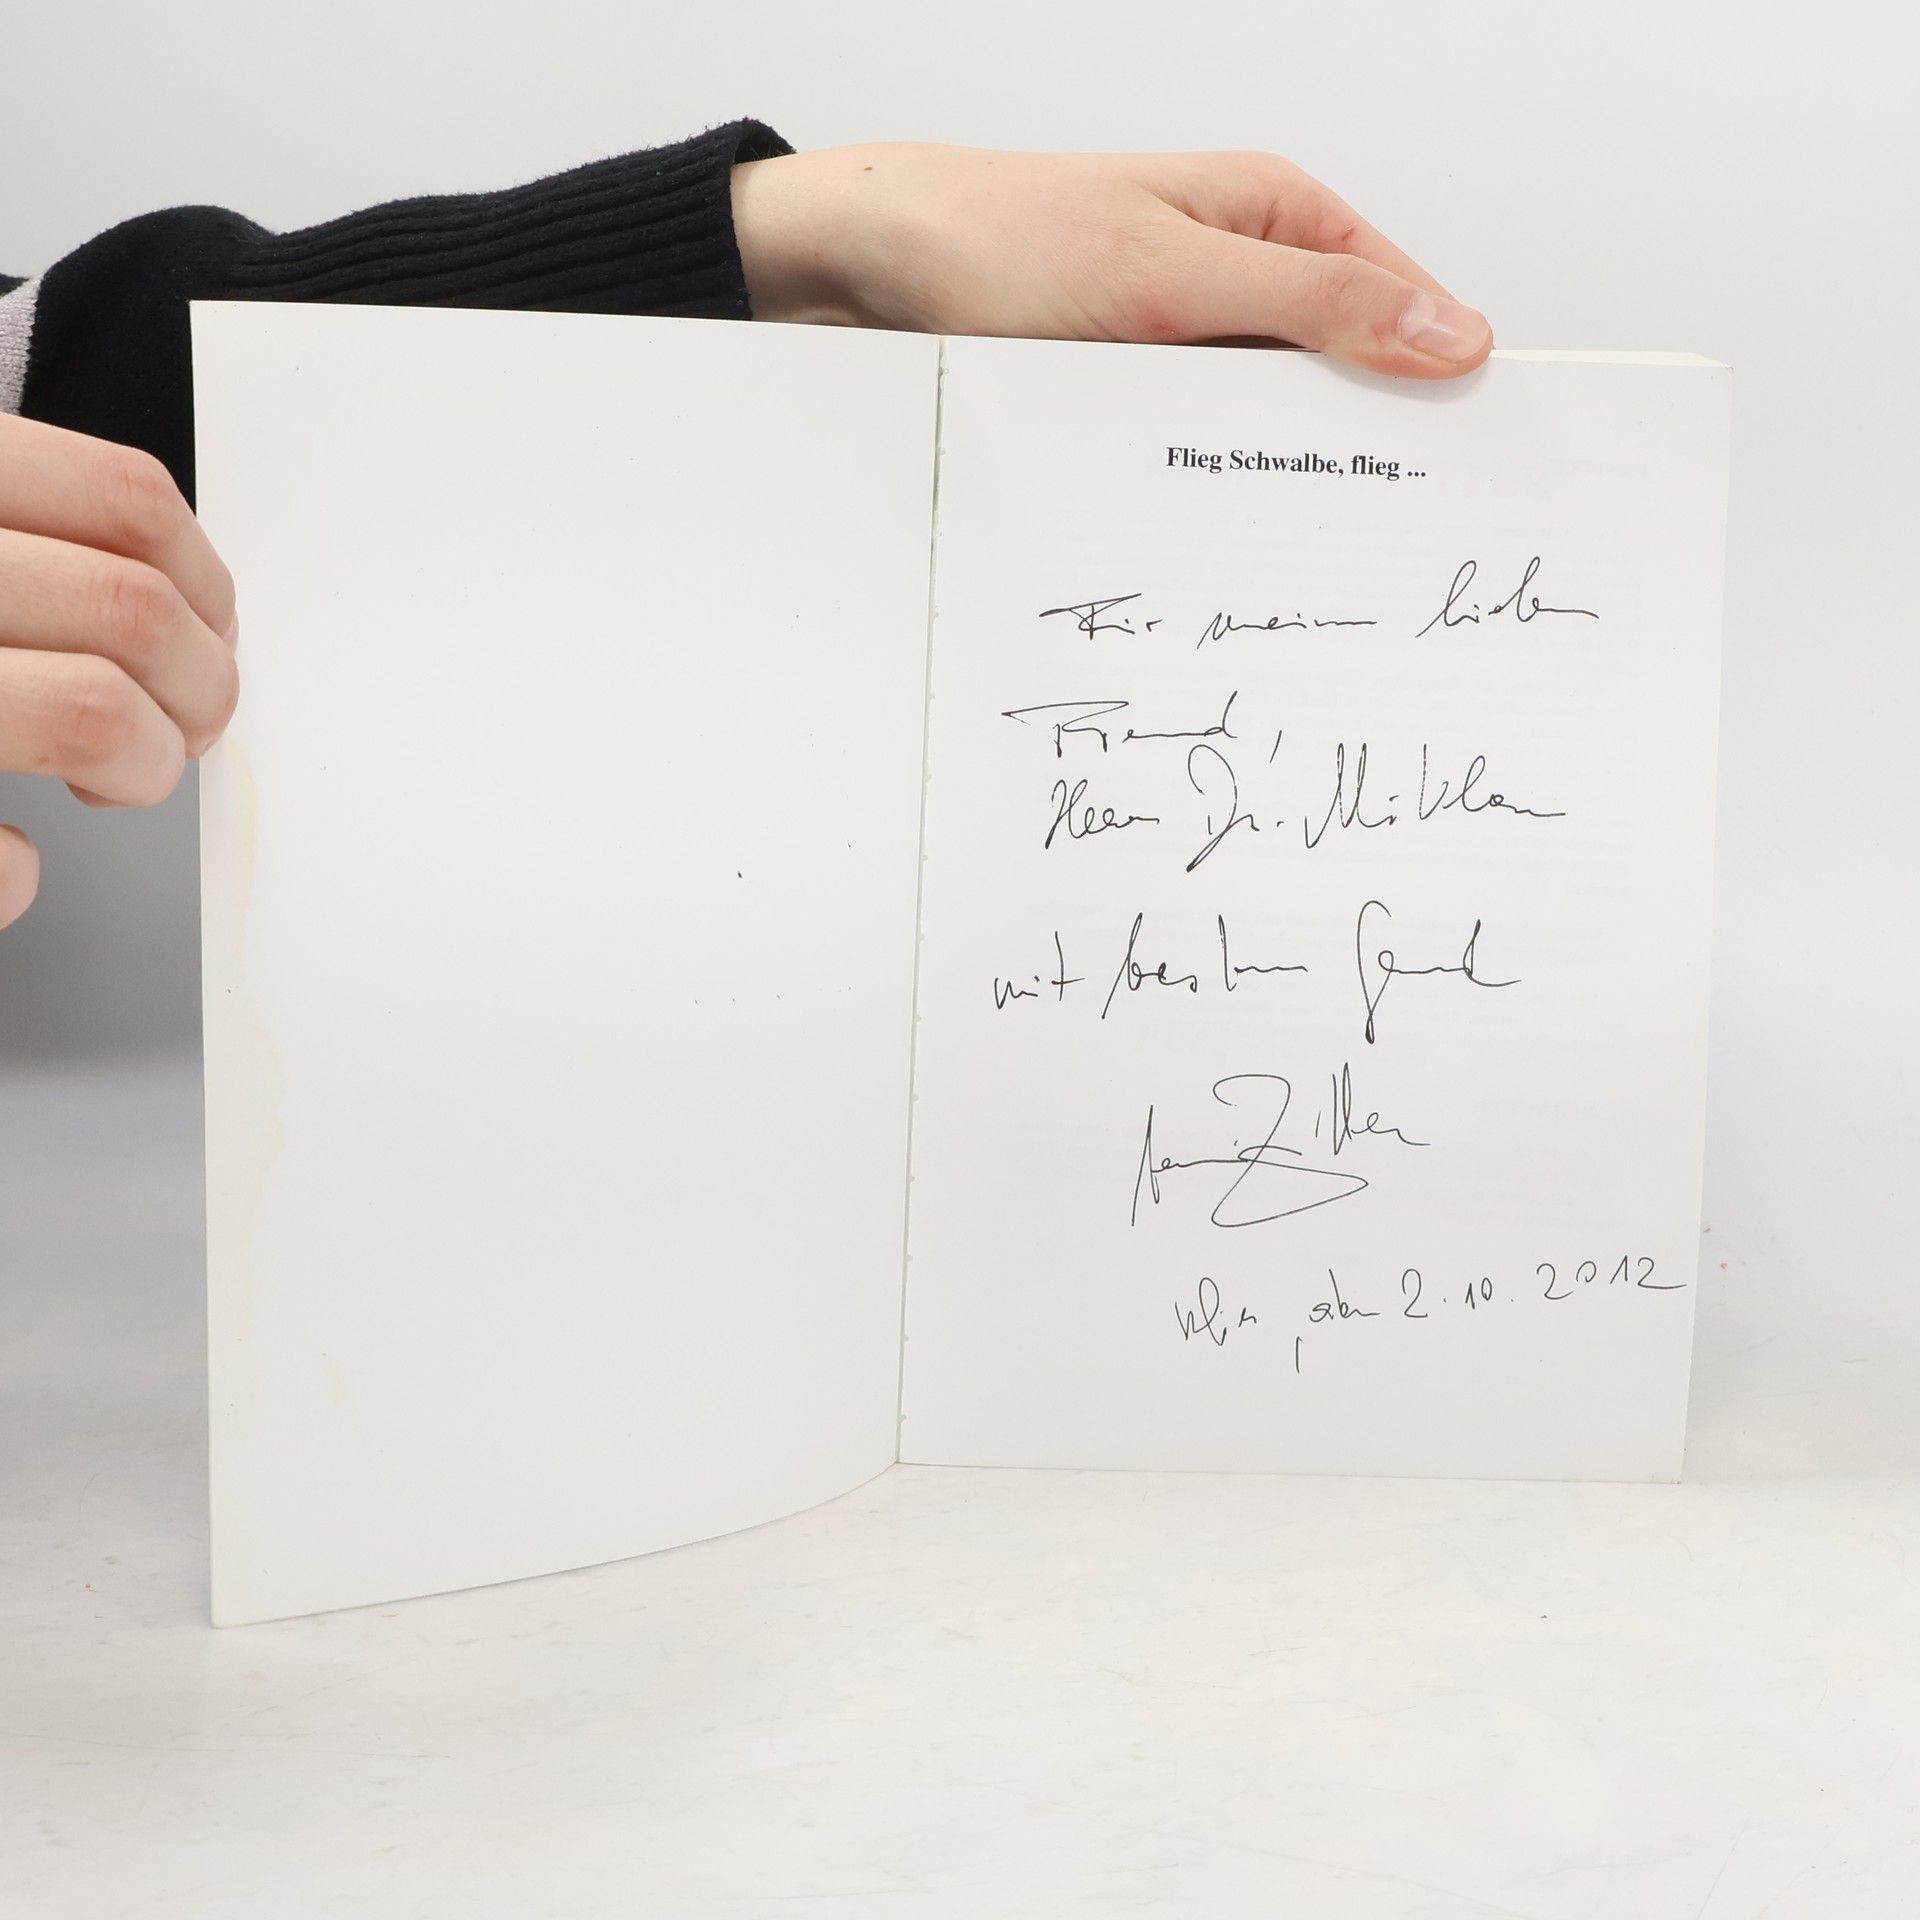 Flieg Schwalbe, flieg ...
Für meinen lieben
Freund,
Herrn Dr. Niklas
mit bestem Gruß
Ziller
Wien, am 2. 10. 2012